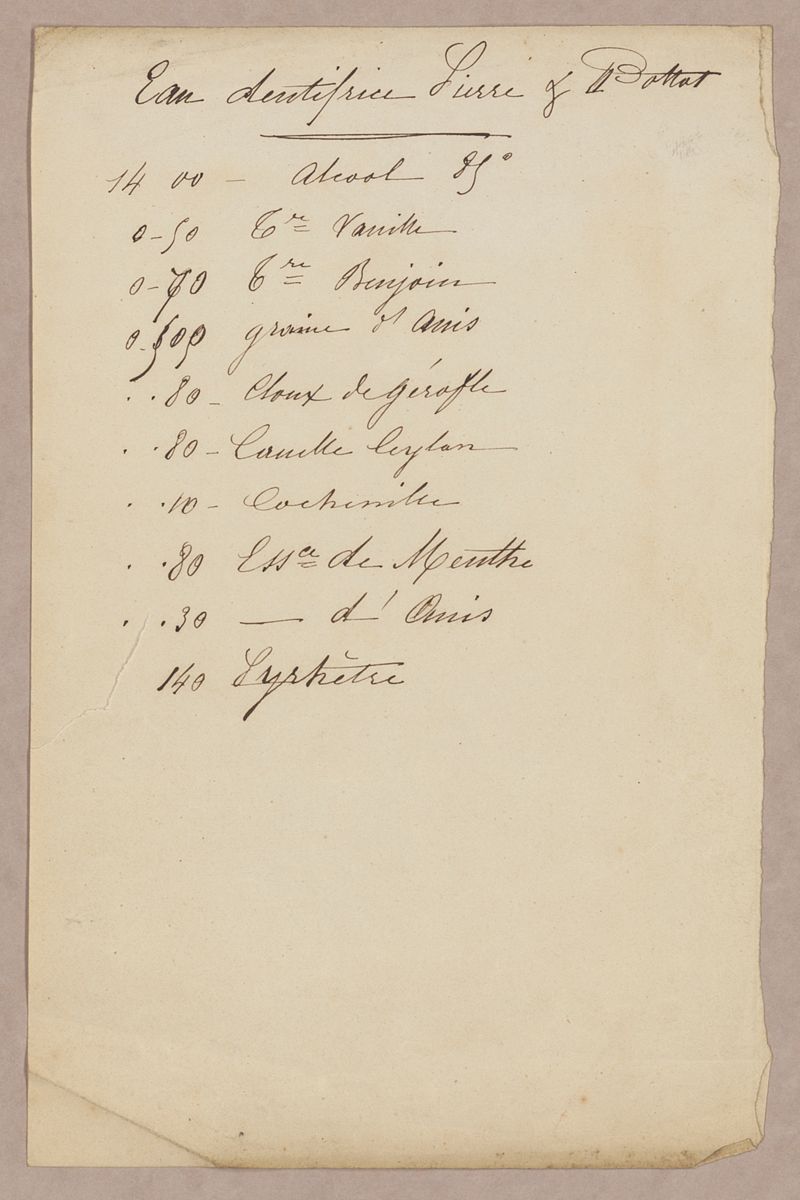 Eau dentifrice Pierre & Bottot
14 00 - Alcool 85°
0-50 Tre Vanille
0-70 Tre Benjoin
0-500 graine d'Anis
. . 80 - Cloux de gérofle
. . 80 - Canelle Ceylan
. . 10 - Cochenille
. . 80 Essce de Menthe
. . 30 — d'Anis
140 Pyrhètre